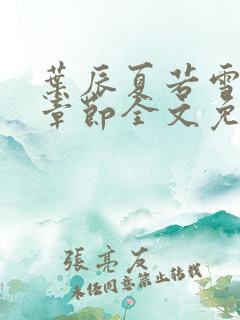 葉辰夏若雪
章節全文免
張亮友
未经同意禁止转载